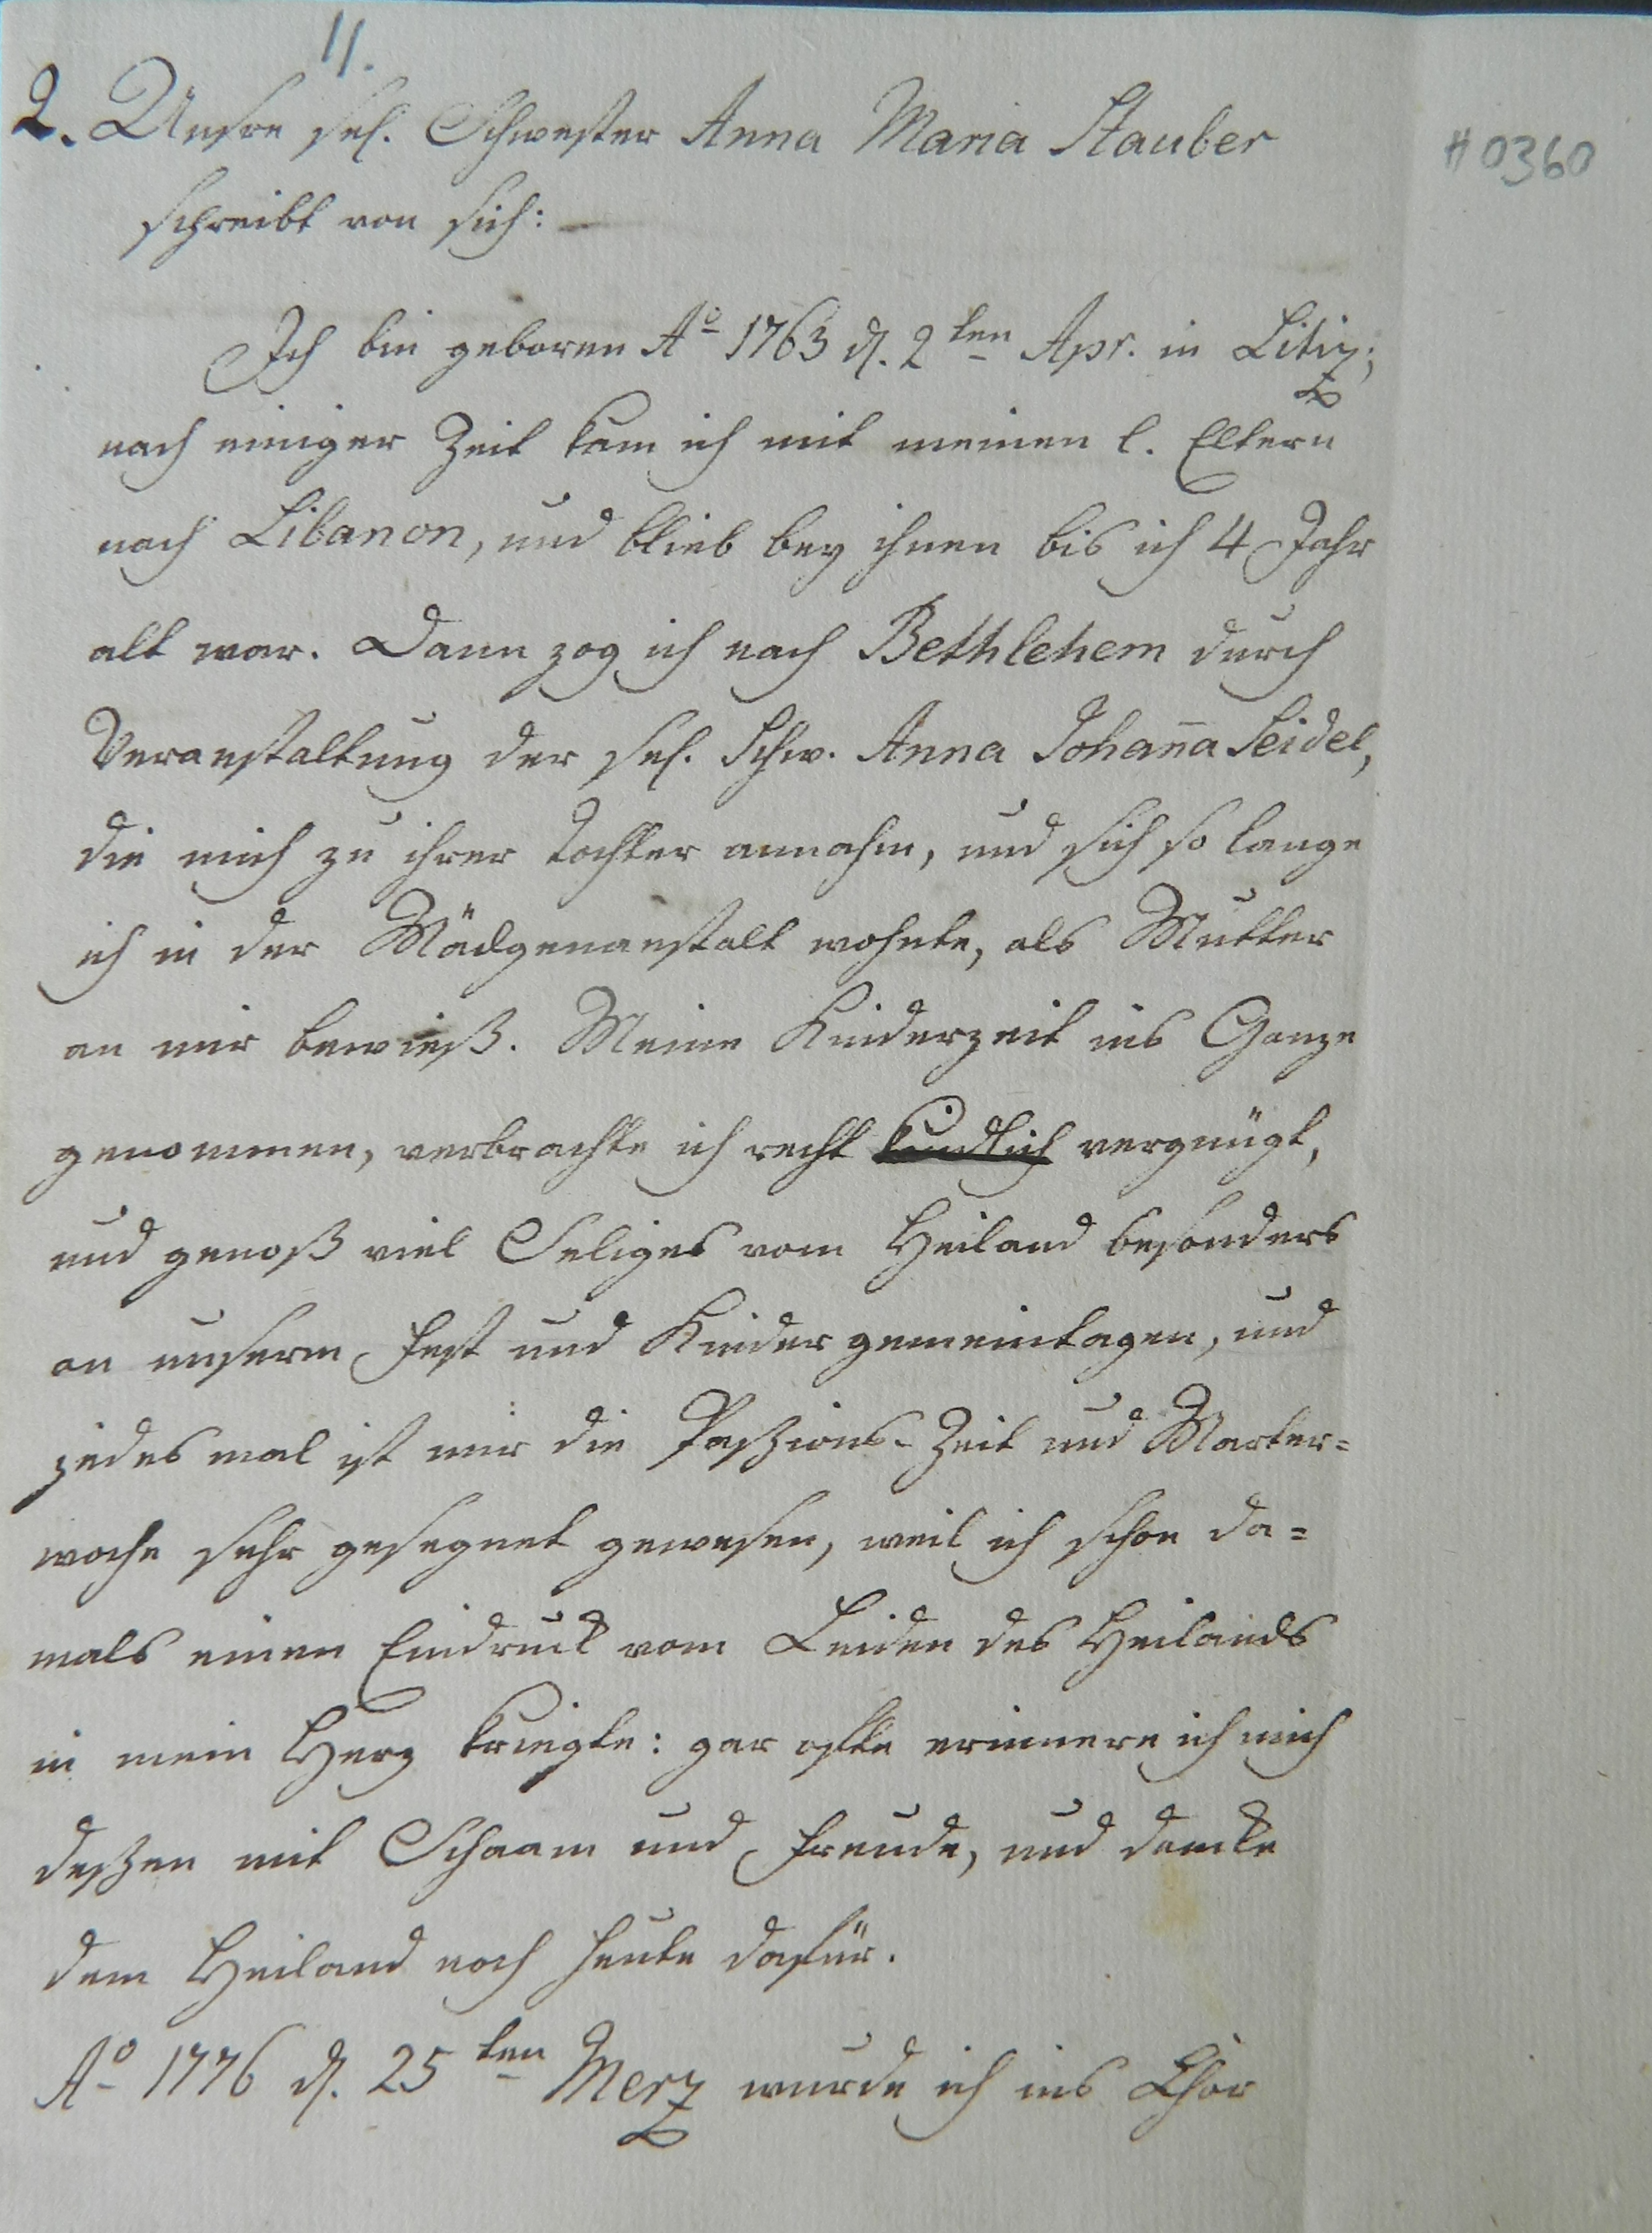 11.
2. Unsre sel. Schwester Anna Maria Stauber
# 0360
schreibt von sich:
Ich bin geboren Ao 1763 d. 2ten Apr. in Litiz;
nach einiger Zeit kam ich mit meinen l. Eltern
nach Libanon, und blieb bey ihnen bis ich 4 Jahr
alt war. Dann zog ich nach Bethlehem durch
Veranstaltung der sel. Schw. Anna Johan̄a Seidel,
die mich zu ihrer Tochter annahm, und sich so lange
ich in der Mädgenanstalt wohnte, als Mutter
an mir bewieß. Meine Kinderzeit ins Ganze
genommen, verbrachte ich recht kindlich vergnügt,
und genoß viel Seliges vom Heiland besonders
an unserm Fest und Kindergemeintagen, und
jedes mal ist mir die Paßzions-Zeit und Marter=
woche sehr gesegnet gewesen, weil ich schon da=
mals einen Eindruck vom Leiden des Heilands
in mein Herz kriegte: gar ofte erinnere ich mich
deßzen mit Schaam und Freude, und dancke
dem Heiland noch heute dafür.
Ao 1776 d. 25ten Merz wurde ich ins Chor